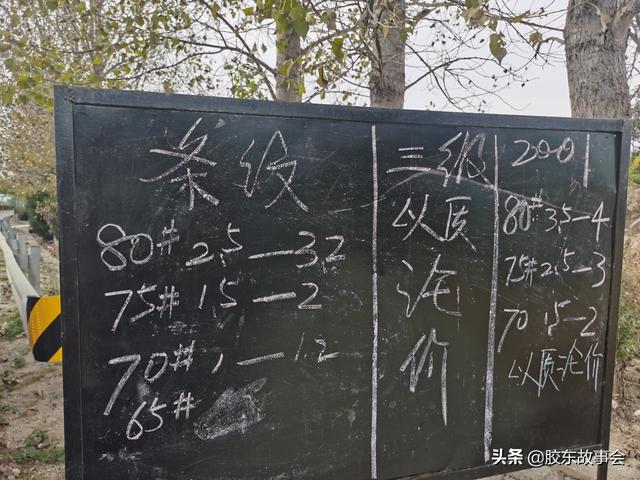 条纹
80# 2.5—3.2
75# 1.5—2
70# 1—1.2
65#
三级
以质
论
价
2001
80# 3.5—4
75# 2.5—3
70 1.5—2
以质论价
头条 @胶东故事会